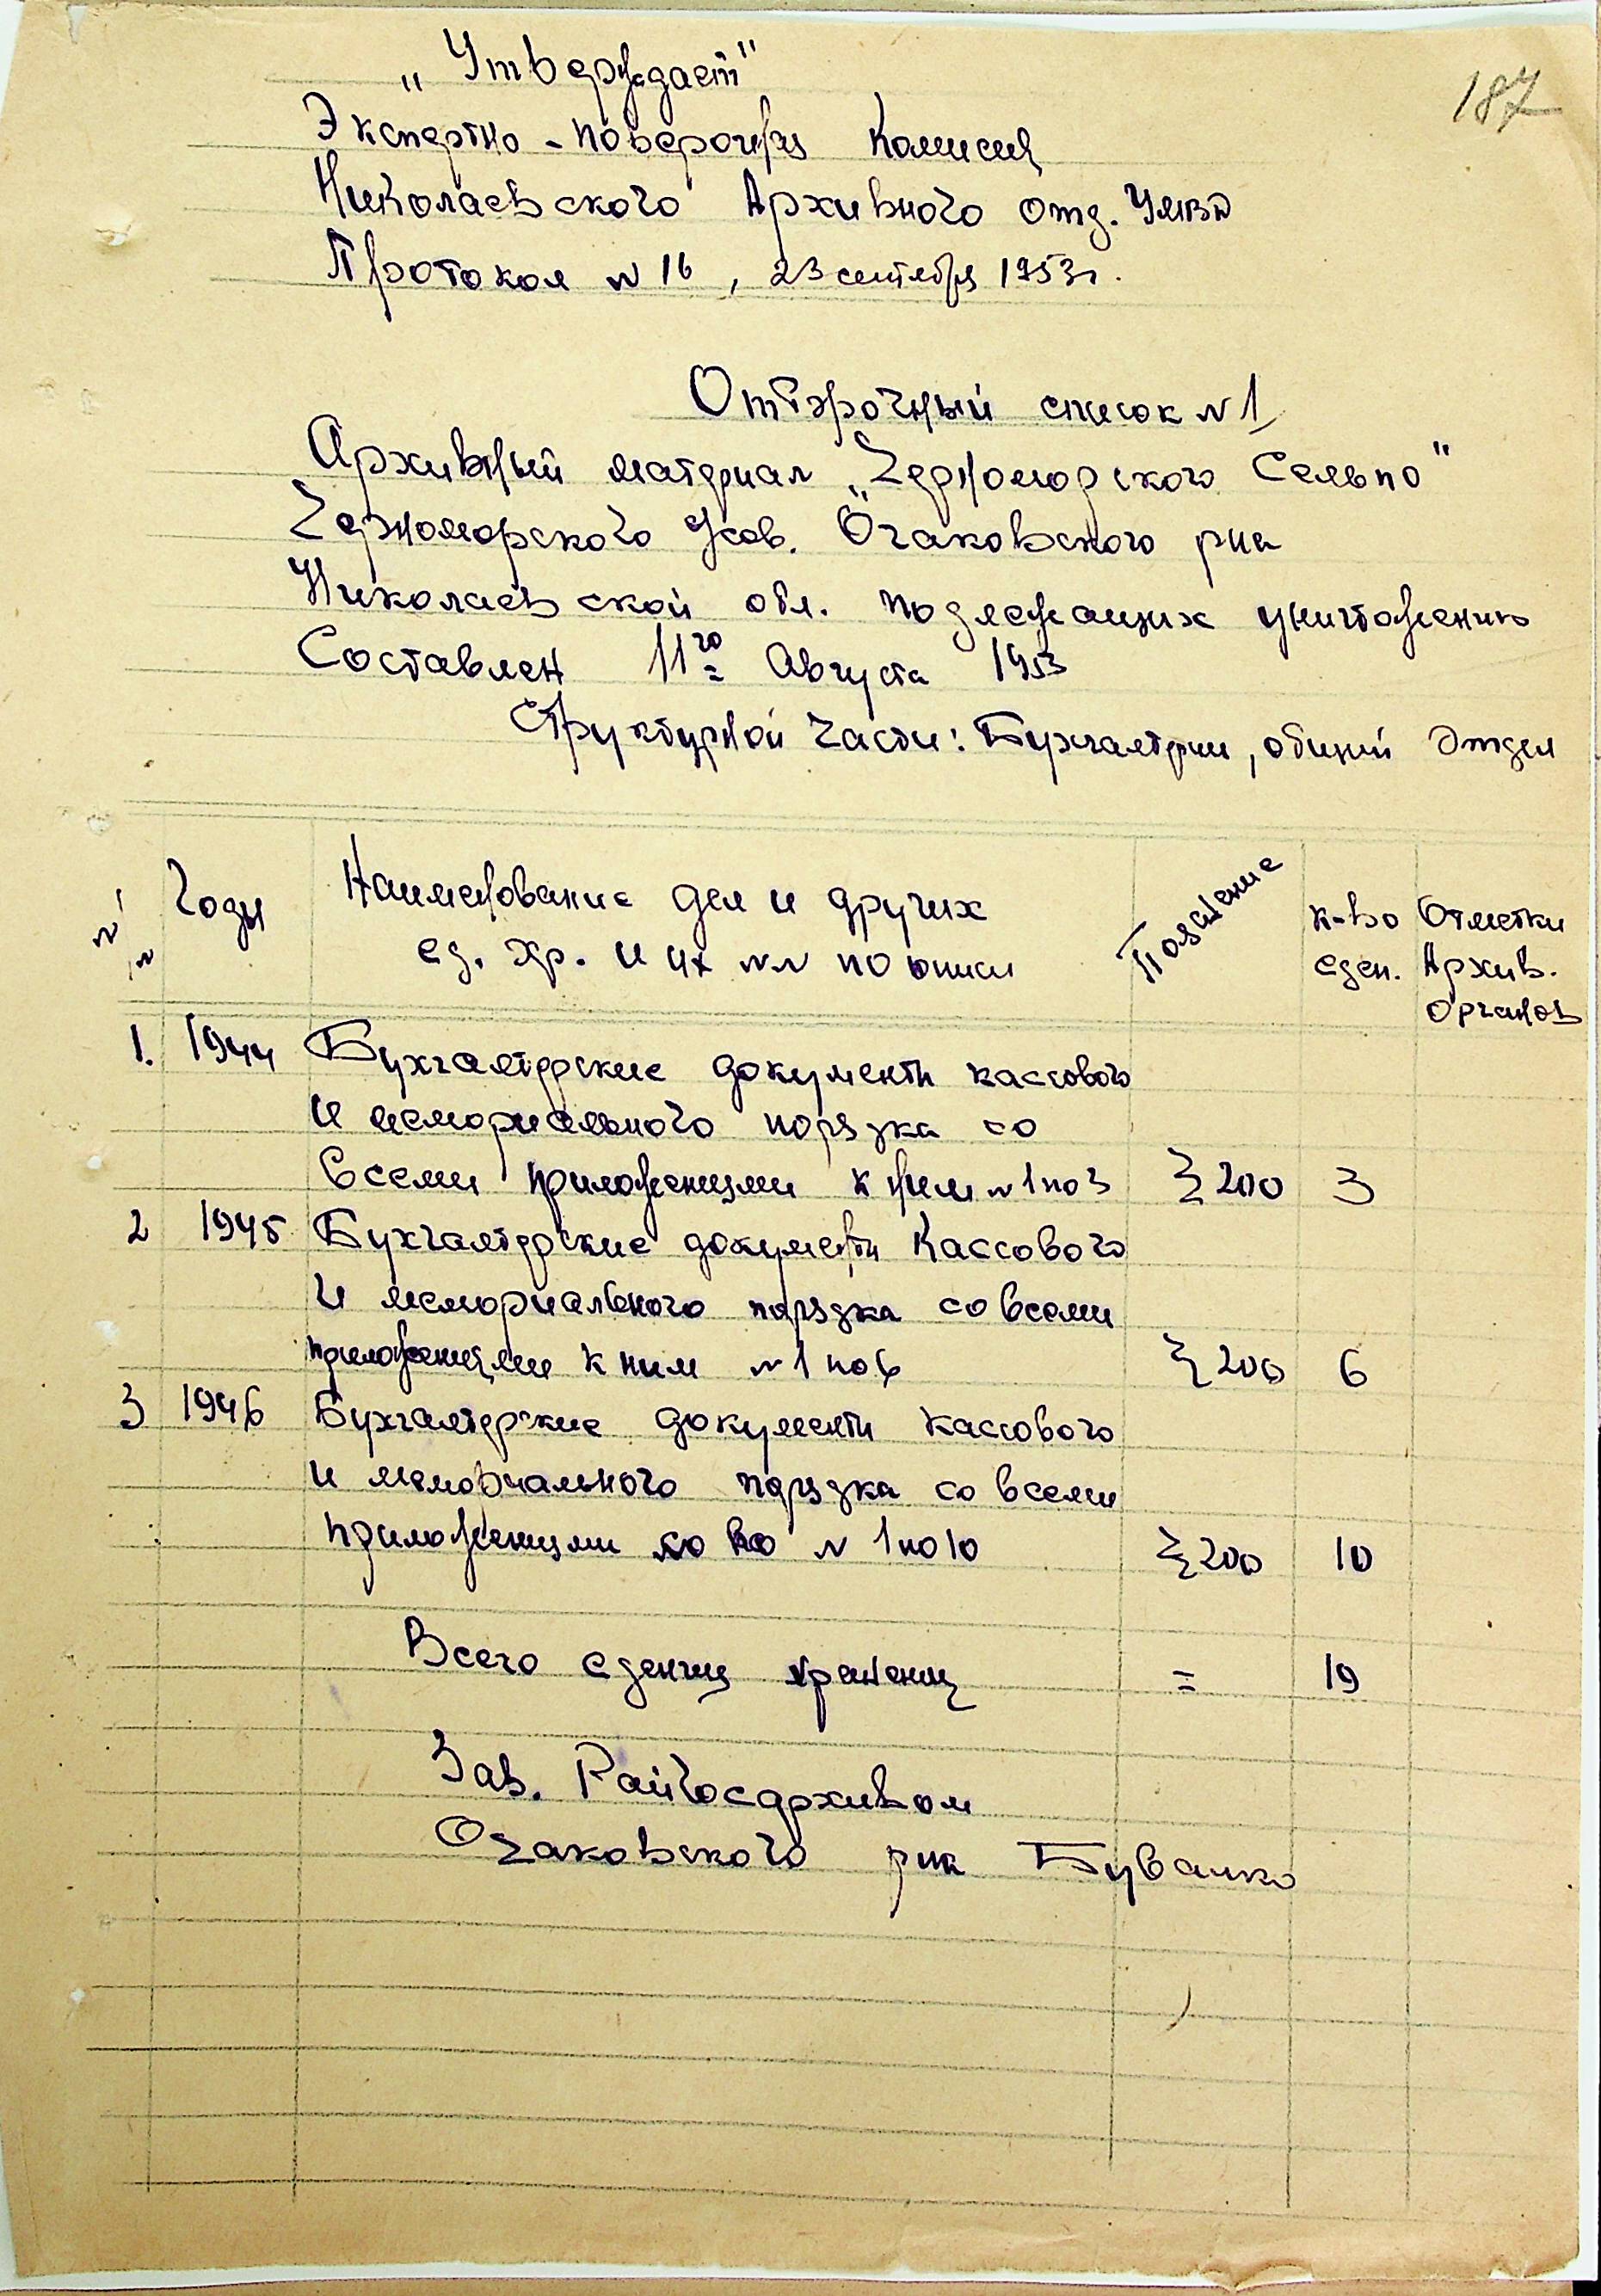 187
„Утверждает"
Экспертно-поверочная Комисия
Николаевского Архивного отд. УМВД
Протокол №16, 23 сентября 1953г.
Отборочный список №1
Архивный материал „Черноморского Сельпо"
Черноморского Очаковского рна
Николаевской обл. подлежащих уничтожению
Составлен 11го Августа 1953
Структурной части: Бухгалтрии, общий отдел
№№ Годы Наименование дел и других ед. хр. и их №№ по описи к-во еден. Отметки Архив. органов
1. 1944 Бухгалтерские документы кассового
и мемориального порядка со
всеми приложениями к ним №1 по 3 § 200 3
2 1945 Бухгалтерские документы Кассового
и мемориального порядка со всеми
приложениями к ним №1 по 6 § 200 6
3 1946 Бухгалтерские документы кассового
и мемориального порядка со всеми
приложениями № 1 по 10 § 200 10
Всего едениц хранения = 19
Зав. Райгосархивом
Очаковского рик Бувалко